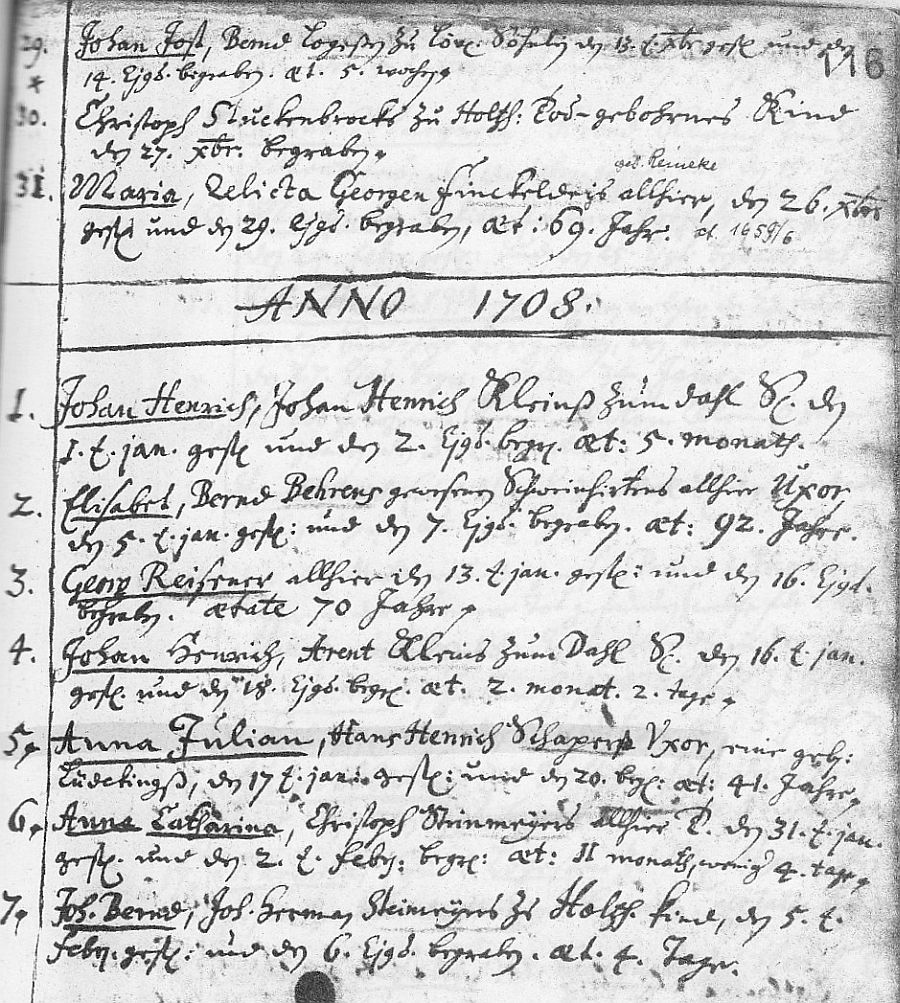 116
29. Johan Jost, Bernd Logeßen zu Löv. Söhnlein den 13. t. xbr gest. und den
14. Ejgd. begraben. æt. 5. wochen.
30. Christoph Stuckenbrocks zu Holtzh: Tod-gebohrnes Kind
den 27. xbr. begraben.
geb. Reineke
31. Maria, Relicta Georgen Finckeldeys allhier, den 26. xbr
gest: und den 29. Ejgd. begraben, Æt: 69. Jahr. at 1659/6
ANNO 1708.
1. Johan Henrich, Johan Henrich Kleinß zum Dahl S. den
1. t. jan. gest. und den 2. Ejgd. begr. æt: 5. monath.
2. Elisabet, Bernd Behrens gewesenen Schweinhirtens allhier Uxor
den 5. t. jan. gest: und den 7. Ejgd. begraben. æt: 92. Jahre.
3. Georg Reisener allhier den 13. t. jan. gest: und den 16. Ejgd.
begraben. ætate 70 Jahre.
4. Johan Henrich, Arent Kleins zum Dahl S. den 16. t. jan.
gest. und den 18. Ejgd. begr. æt. 2. monat. 2. tage.
5. Anna Julian, Hans Henrich Schapers Uxor, eine geb:
Lüdekingß, den 17 t. jan. gest: und den 20. begr: æt: 41. Jahre.
6. Anna Catharina, Christoph Steinmeyers allhier T. den 31. t. jan.
gest. und den 2. t. febr: begr: æt: 11 monath, wenig 4. tage.
7. Joh. Bernd, Joh. Herman Steimeyers zu Holtzh. kind, den 5. t.
febr. gest: und den 6. Ejgd. begraben. æt. 4. Tage.